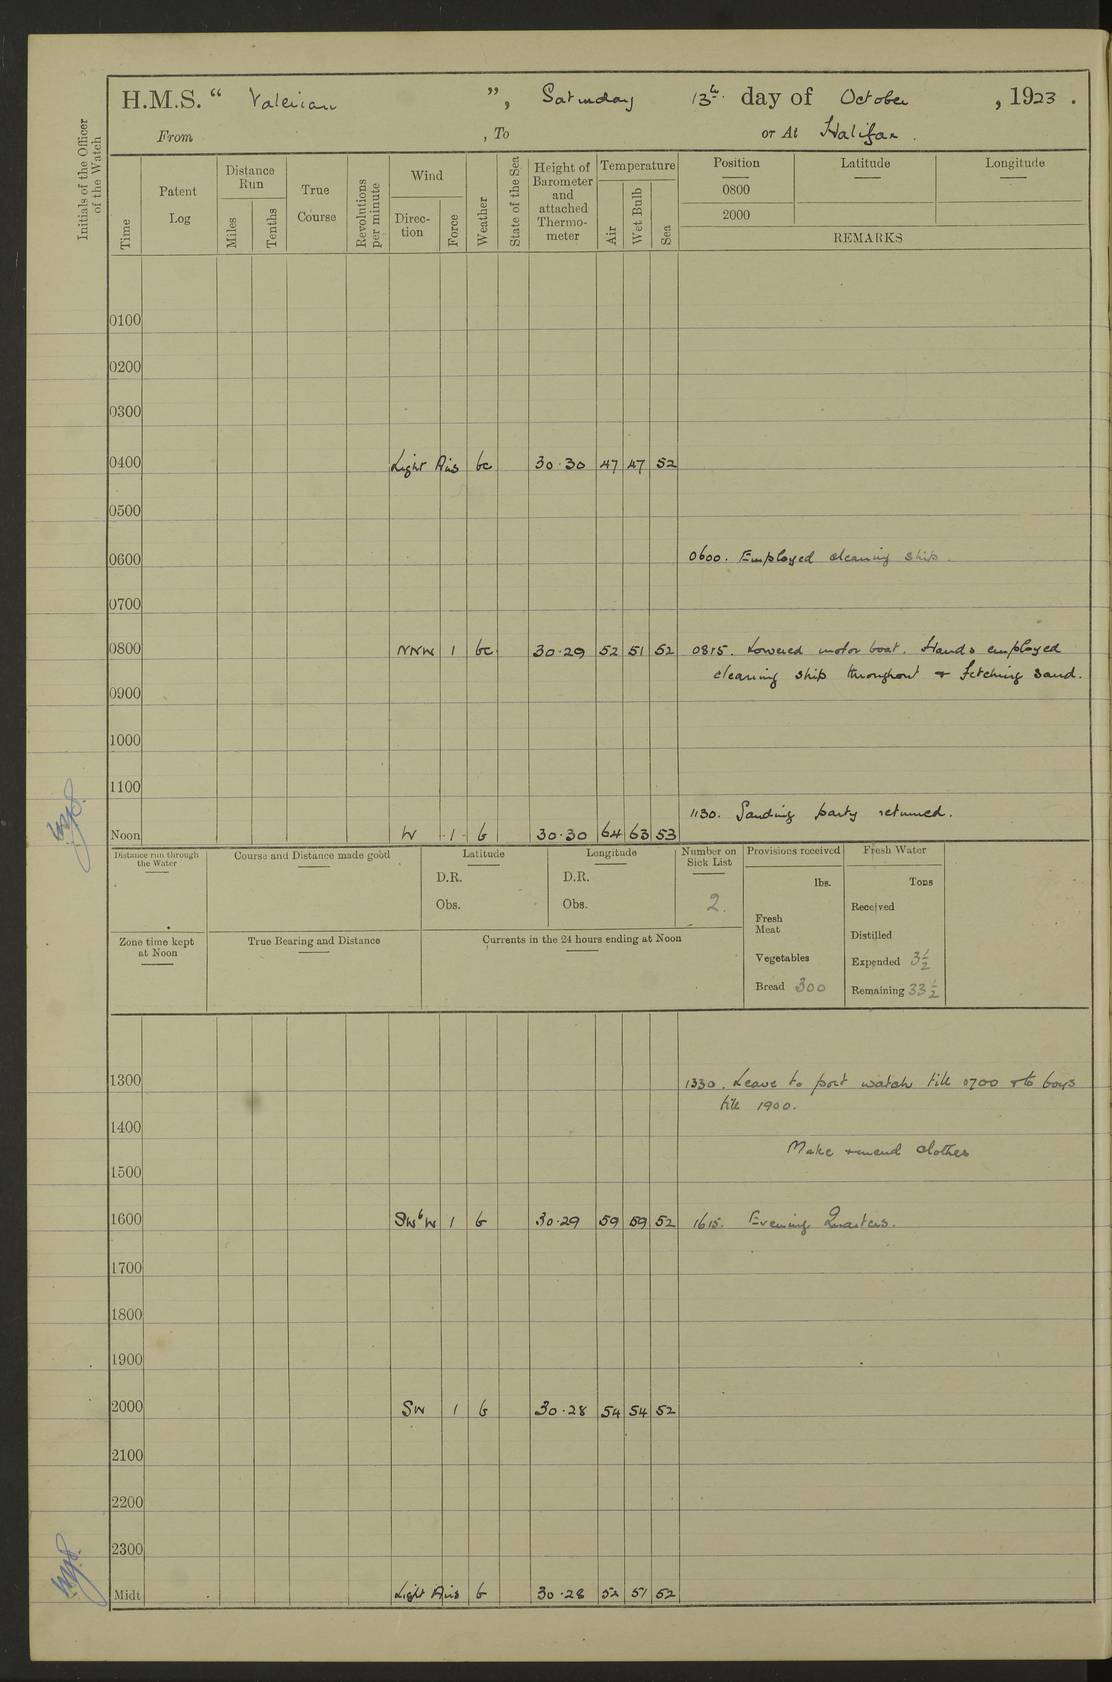 H.M.S. “ Valerian ”, Saturday 13th day of October , 1923 .
From , To or At Halifax .
Initials of the Officer of the Watch
Time
Patent Log
Distance Run
Miles
Tenths
True Course
Revolutions per minute
Wind
Direc-tion
Force
Weather
State of the Sea
Height of Barometer and attached Thermo-meter
Temperature
Air
Wet Bulb
Sea
Position Latitude Longitude
0800
2000
REMARKS
0100
0200
0300
0400 Light Airs bc 30·30 47 47 52
0500
0600 0600. Employed cleaning ship.
0700
0800 NNW 1 bc 30·29 52 51 52 0815. Lowered motor boat. Hands employed
cleaning ship throughout & fetching sand.
0900
1000
1100
1130. Sanding party returned.
Noon W 1 b 30·30 64 63 53
Distance run through the Water
Course and Distance made good
Latitude
D.R.
Obs.
Longitude
D.R.
Obs.
Number on Sick List
2.
Provisions received
lbs.
Fresh Meat
Vegetables
Bread 300
Fresh Water
Tons
Received
Distilled
Expended 3½
Remaining 33½
Zone time kept at Noon
True Bearing and Distance
Currents in the 24 hours ending at Noon
1300 1330. Leave to port watch till 0700 & to boys
till 1900.
1400
Make & mend clothes
1500
1600 SWbW 1 b 30·29 59 59 52 1615. Evening Quarters.
1700
1800
1900
2000 SW 1 b 30·28 54 54 52
2100
2200
2300
Midt Light Airs b 30·28 52 51 52